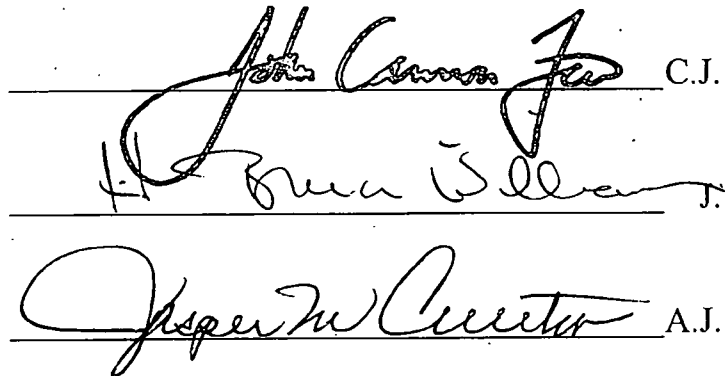 John Cannon Few C.J.
H Bruce Williams J.
Jasper M Cureton A.J.